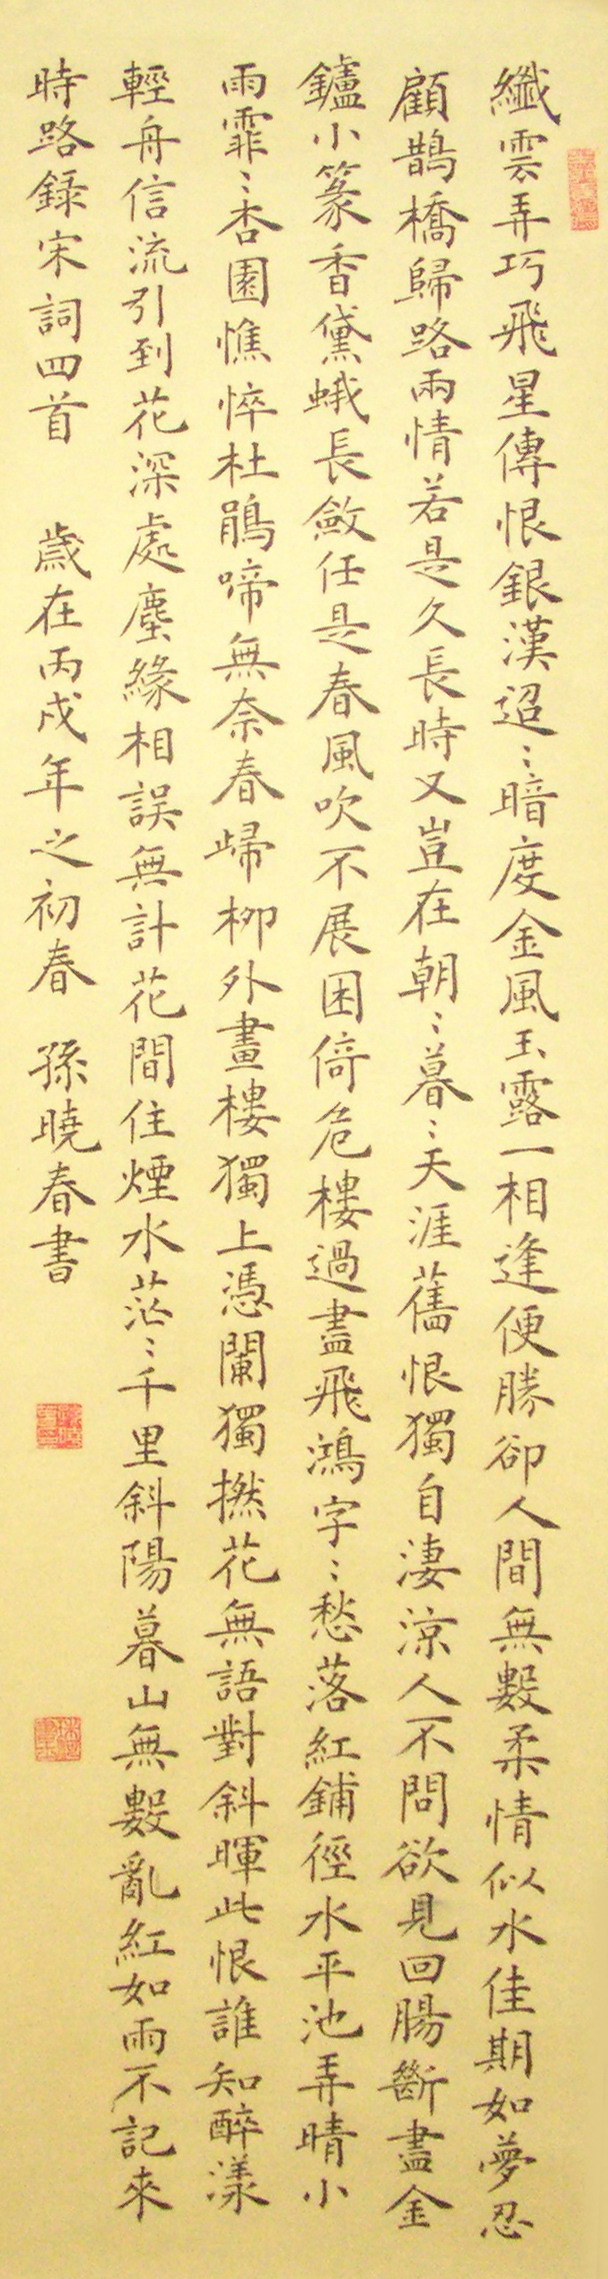 纖雲弄巧飛星傳恨銀漢迢〻暗度金風玉露一相逢便勝卻人間無數柔情似水佳期如夢忍
顧鵲橋歸路兩情若是久長時又豈在朝〻暮〻天涯舊恨獨自淒涼人不問欲見回腸斷盡金
鑪小篆香黛蛾長斂任是春風吹不展困倚危樓過盡飛鴻字〻愁落紅鋪徑水平池弄晴小
雨霏〻杏園憔悴杜鵑啼無奈春歸柳外畫樓獨上憑闌獨撚花無語對斜暉此恨誰知醉漾
輕舟信流引到花深處塵緣相誤無計花間住煙水茫〻千里斜陽暮山無數亂紅如雨不記來
時路錄宋詞四首　歲在丙戌年之初春　孫曉春書